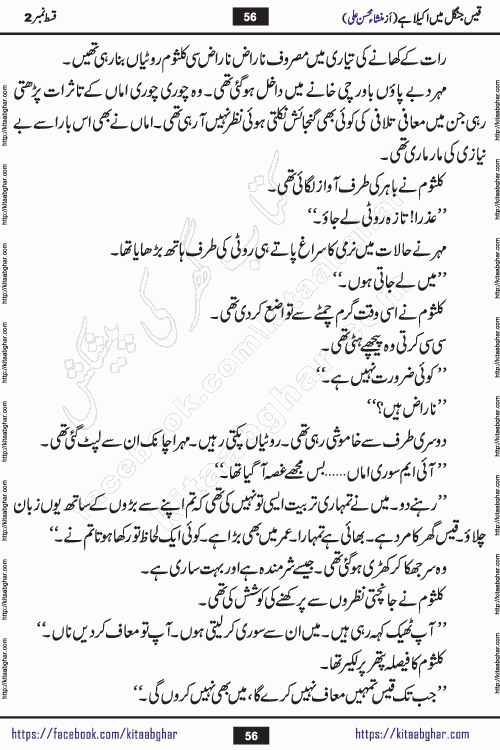 قیس جنگل میں اکیلا ہے (از منشاء محسن علی) 56 قسط نمبر 2
رات کے کھانے کی تیاری میں مصروف ناراض ناراض سی کلثوم روٹیاں بنا رہی تھیں۔
مہر دبے پاؤں باورچی خانے میں داخل ہو گئی تھی۔ وہ چوری چوری اماں کے تاثرات پڑھتی
رہی جن میں معافی تلافی کی کوئی بھی گنجائش نکلتی ہوئی نظر نہیں آ رہی تھی۔ اماں نے بھی اس بار اسے بے
نیازی کی مار ماری تھی۔
کلثوم نے باہر کی طرف آواز لگائی تھی۔
’’عذرا! تازہ روٹی لے جاؤ۔‘‘
مہر نے حالات میں نرمی کا سراغ پاتے ہی روٹی کی طرف ہاتھ بڑھایا تھا۔
’’میں لے جاتی ہوں۔‘‘
کلثوم نے اسی وقت گرم چمٹے سے تواضع کر دی تھی۔
سی سی کرتی وہ پیچھے ہٹی تھی۔
’’کوئی ضرورت نہیں ہے۔‘‘
’’ناراض ہیں؟‘‘
دوسری طرف سے خاموشی رہی تھی۔ روٹیاں پکتی رہیں۔ مہر اچانک ان سے لپٹ گئی تھی۔
’’آئی ایم سوری اماں......بس مجھے غصہ آ گیا تھا۔‘‘
’’رہنے دو۔ میں نے تمہاری تربیت ایسی تو نہیں کی تھی کہ تم اپنے سے بڑوں کے ساتھ یوں زبان
چلاؤ۔ قیس گھر کا مرد ہے۔ بھائی ہے تمہارا۔ عمر میں بھی بڑا ہے۔ کوئی ایک لحاظ تو رکھا ہوتا تم نے۔‘‘
وہ سر جھکا کر کھڑی ہو گئی تھی۔ جیسے شرمندہ ہے اور بہت ساری ہے۔
کلثوم نے جانچتی نظروں سے پرکھنے کی کوشش کی تھی۔
’’آپ ٹھیک کہہ رہی ہیں۔ میں ان سے سوری کر لیتی ہوں۔ آپ تو معاف کر دیں ناں۔‘‘
کلثوم کا فیصلہ پتھر پر لکیر تھا۔
’’جب تک قیس تمہیں معاف نہیں کرے گا، میں بھی نہیں کروں گی۔‘‘
https://facebook.com/kitaabghar 56 https://kitaabghar.com
http://kitaabghar.com
کتاب گھر کی پیشکش
facebook.com/kitaabghar
kitaabghar.com